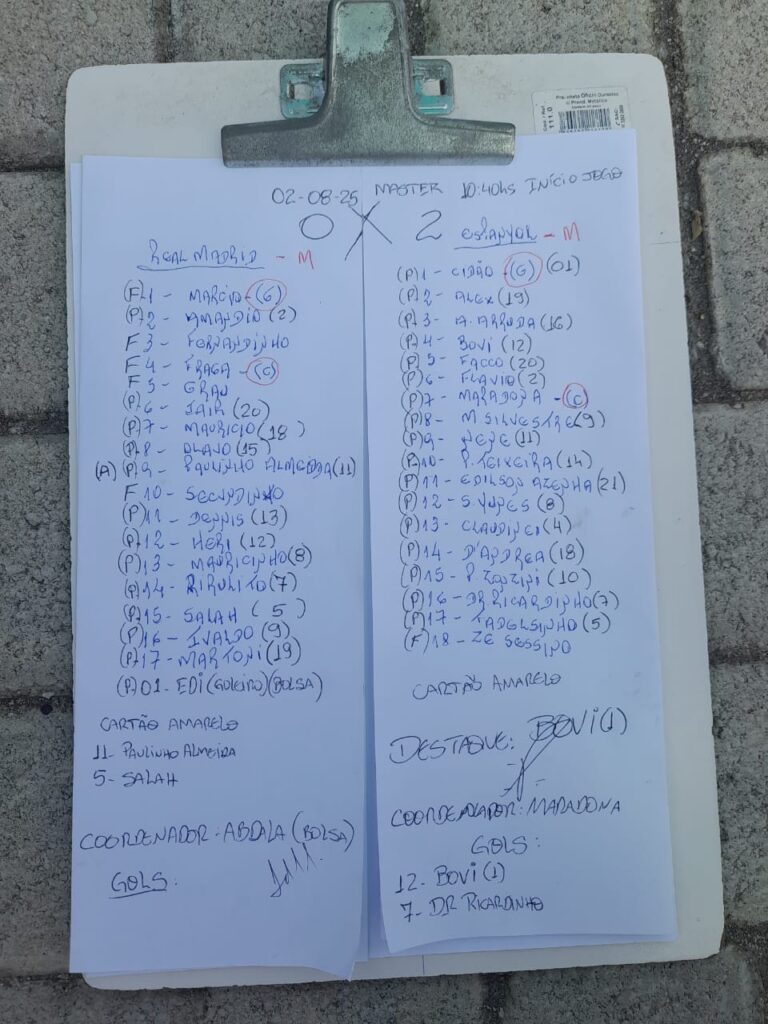 02-08-25 MASTER 10:40HS INÍCIO JOGO
0 X 2
REAL MADRID - M
(F) 1 - MARCIO - (G)
(P) 2 - AMANDIO (2)
F 3 - FERNANDINHO
F 4 - FRAGA - (C)
F 5 - GRAN
(P) 6 - JAIR (20)
(P) 7 - MAURICIO (18)
(P) 8 - OLAVO (15)
(A) (P) 9 - PAULINHO ALMEIDA (11)
F 10 - SECUNDINHO
(P) 11 - DENNIS (13)
(P) 12 - HERI (12)
(P) 13 - MAURICINHO (8)
(P) 14 - PIRULITO (7)
(P) 15 - SALAH (5)
(P) 16 - IVALDO (9)
(P) 17 - MARTONI (19)
(P) 01 - EDI (GOLEIRO) (BOLSA)
CARTÃO AMARELO
11 - PAULINHO ALMEIDA
5 - SALAH
COORDENADOR: ABDALA (BOLSA)
GOLS:
ESPANYOL - M
(P) 1 - CIDÃO - (G) (01)
(P) 2 - ALEX (19)
(P) 3 - A. ARRUDA (16)
(P) 4 - BOVI (12)
(P) 5 - FACCO (20)
(P) 6 - FLAVIO (2)
(P) 7 - MARADONA - (C)
(P) 8 - M SILVESTRE (9)
(P) 9 - NENE (11)
(P) 10 - P. TEIXEIRA (14)
(P) 11 - EDILSON AZENHA (21)
(P) 12 - S. NUNES (8)
(P) 13 - CLAUDINEI (4)
(P) 14 - D'ANDREA (18)
(P) 15 - P. ZANZINI (10)
(P) 16 - DR. RICARDINHO (7)
(P) 17 - TADEUSINHO (5)
(F) 18 - ZÉ SESSINO
CARTÃO AMARELO
DESTAQUE: BOVI (1)
COORDENADOR: MARADONA
GOLS:
12 - BOVI (1)
7 - DR RICARDINHO
111.0